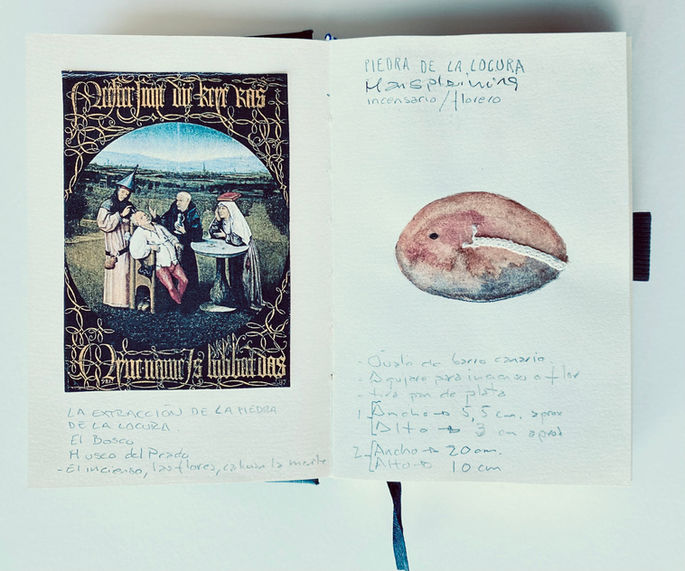 Meester snyt die keye ras
Myne name Is lubbert das
LA EXTRACCIÓN DE LA PIEDRA
DE LA LOCURA.
El Bosco
Museo del Prado
- El incienso, las flores, calman la mente
PIEDRA DE LA LOCURA
Mansplaining
incensario/florero
- Óvalo de barro canario.
- Agujero para incienso o flor
- tira pan de plata
1. Ancho → 5,5 cm. aprox
Alto → 3 cm aprox
2. Ancho → 20 cm.
Alto → 10 cm